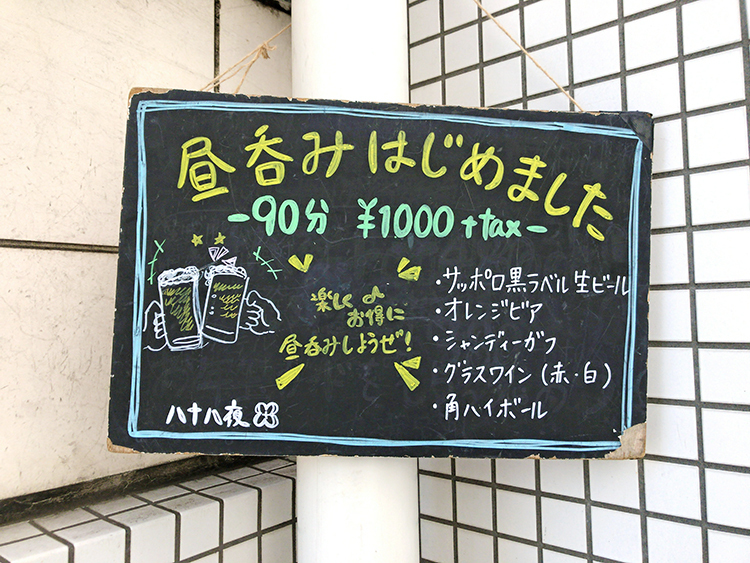 昼呑みはじめました
-90分 ¥1000+tax-
楽しく♪
お得に
昼呑みしようぜ!
・サッポロ黒ラベル生ビール
・オレンジビア
・シャンディーガフ
・グラスワイン(赤・白)
・角ハイボール
八十八夜